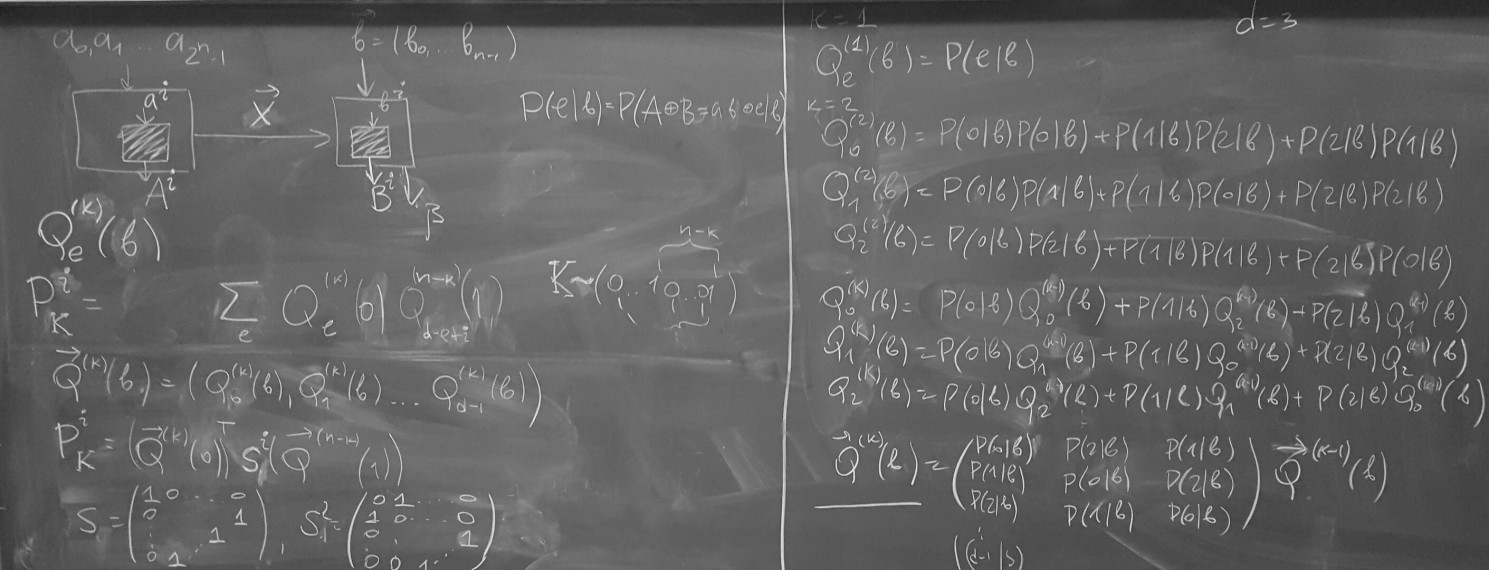 a₀,a₁ ... a_{2ⁿ-1}
b⃗ = (b₀,... b_{n-1})
aⁱ
X⃗
bⁱ
Aⁱ
Bⁱ
β
P(e|b)=P(A⊕B=ab⊕e|b)
Q_e^{(k)}(b)
P_K^i = ∑_e Q_e^{(k)}(0) Q_{d-e+i}^{(n-k)}(1)
K~(0...10...01)
n-k
Q⃗^{(k)}(b) = (Q_0^{(k)}(b), Q_1^{(k)}(b) ... Q_{d-1}^{(k)}(b))
P_K^i = (Q⃗^{(k)}(0))^T S^i (Q⃗^{(n-k)}(1))
S = (1 0 ... 0
0 1
⋮ 1
0 1 ),
= (0 1 ... 0
1 0 ... 0
0 . 1
0 0 1 .)
K=1
d=3
Q_e^{(1)}(b) = P(e|b)
K=2
Q_0^{(2)}(b) = P(0|b)P(0|b)+P(1|b)P(2|b)+P(2|b)P(1|b)
Q_1^{(2)}(b) = P(0|b)P(1|b)+P(1|b)P(0|b)+P(2|b)P(2|b)
Q_2^{(2)}(b) = P(0|b)P(2|b)+P(1|b)P(1|b)+P(2|b)P(0|b)
Q_0^{(k)}(b) = P(0|b)Q_0^{(k-1)}(b)+P(1|b)Q_2^{(k-1)}(b)+P(2|b)Q_1^{(k-1)}(b)
Q_1^{(k)}(b) = P(0|b)Q_1^{(k-1)}(b)+P(1|b)Q_0^{(k-1)}(b)+P(2|b)Q_2^{(k-1)}(b)
Q_2^{(k)}(b) = P(0|b)Q_2^{(k-1)}(b)+P(1|b)Q_1^{(k-1)}(b)+P(2|b)Q_0^{(k-1)}(b)
Q⃗^{(k)}(b) = (P(0|b) P(2|b) P(1|b)
P(1|b) P(0|b) P(2|b)
P(2|b) P(1|b) P(0|b)) Q⃗^{(k-1)}(b)
⋮
(d-1|b)